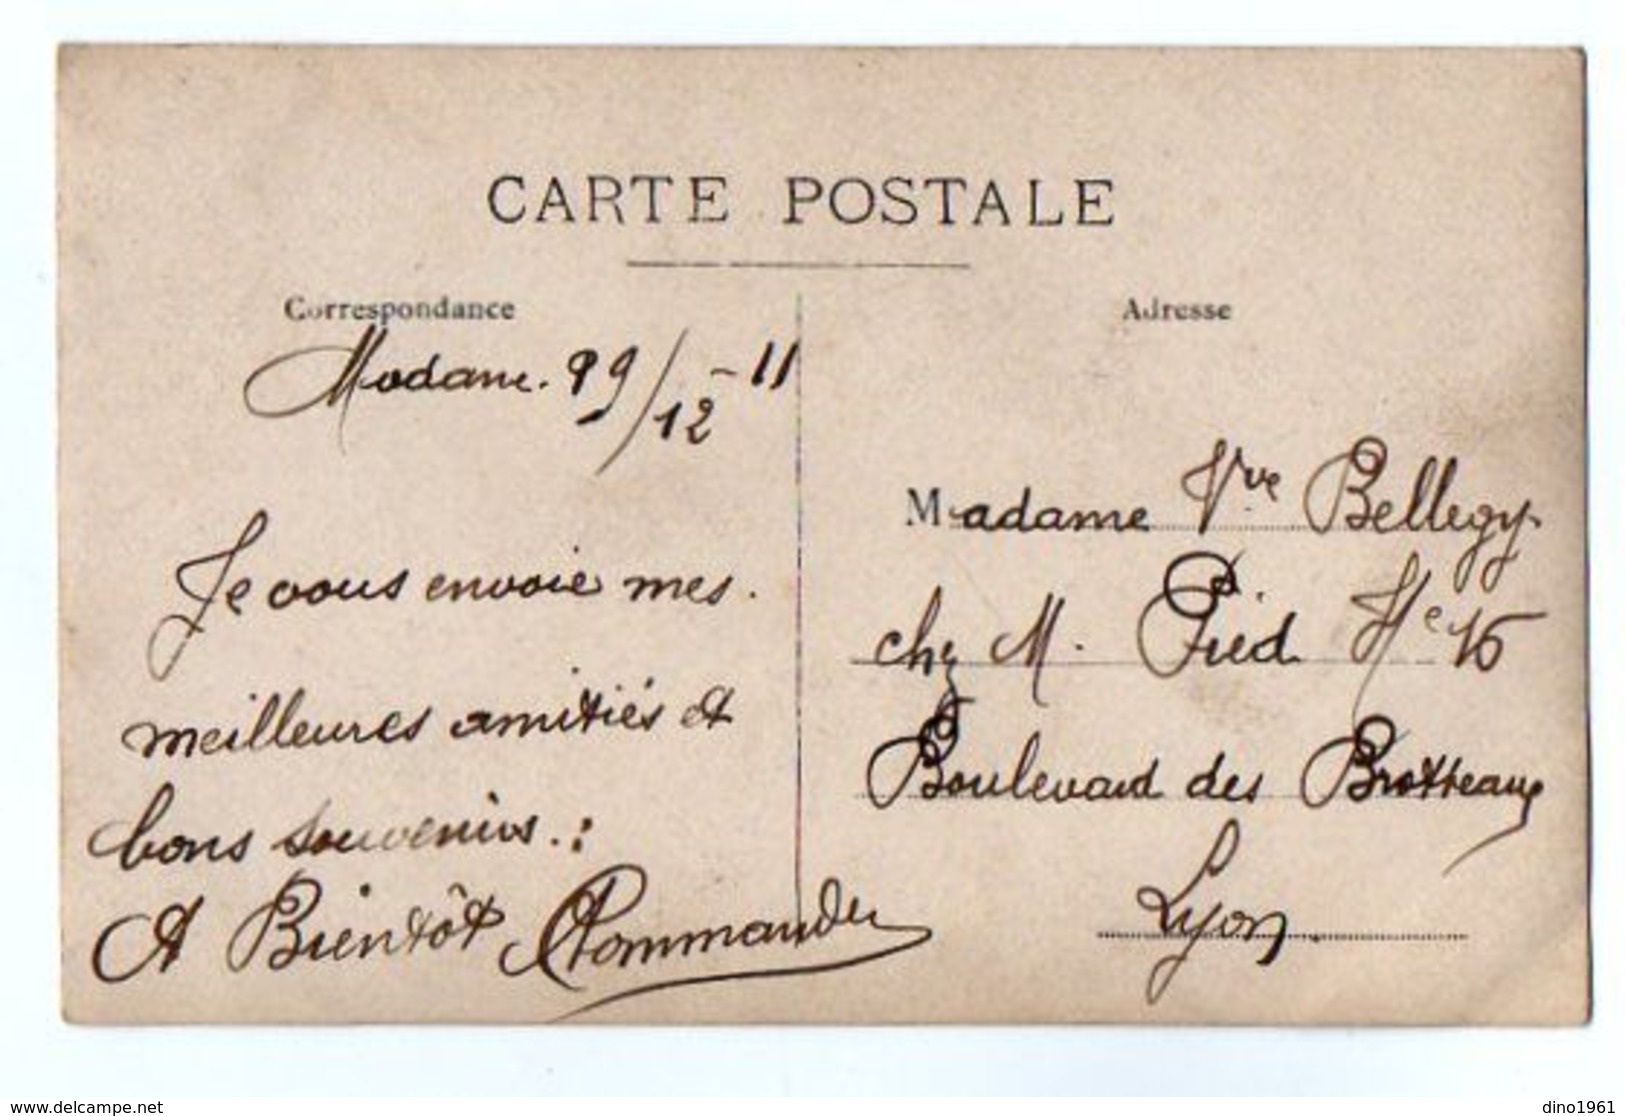 CARTE POSTALE
Correspondance
Adresse
Modane. 29/12-11
Je vous envoie mes
meilleures amitiés et
bons souvenirs.
A Bientôt
Madame Vve Bellegy
chez M. Pied
Boulevard des Brotteaux
Lyon.
www.delcampe.net
dino1961